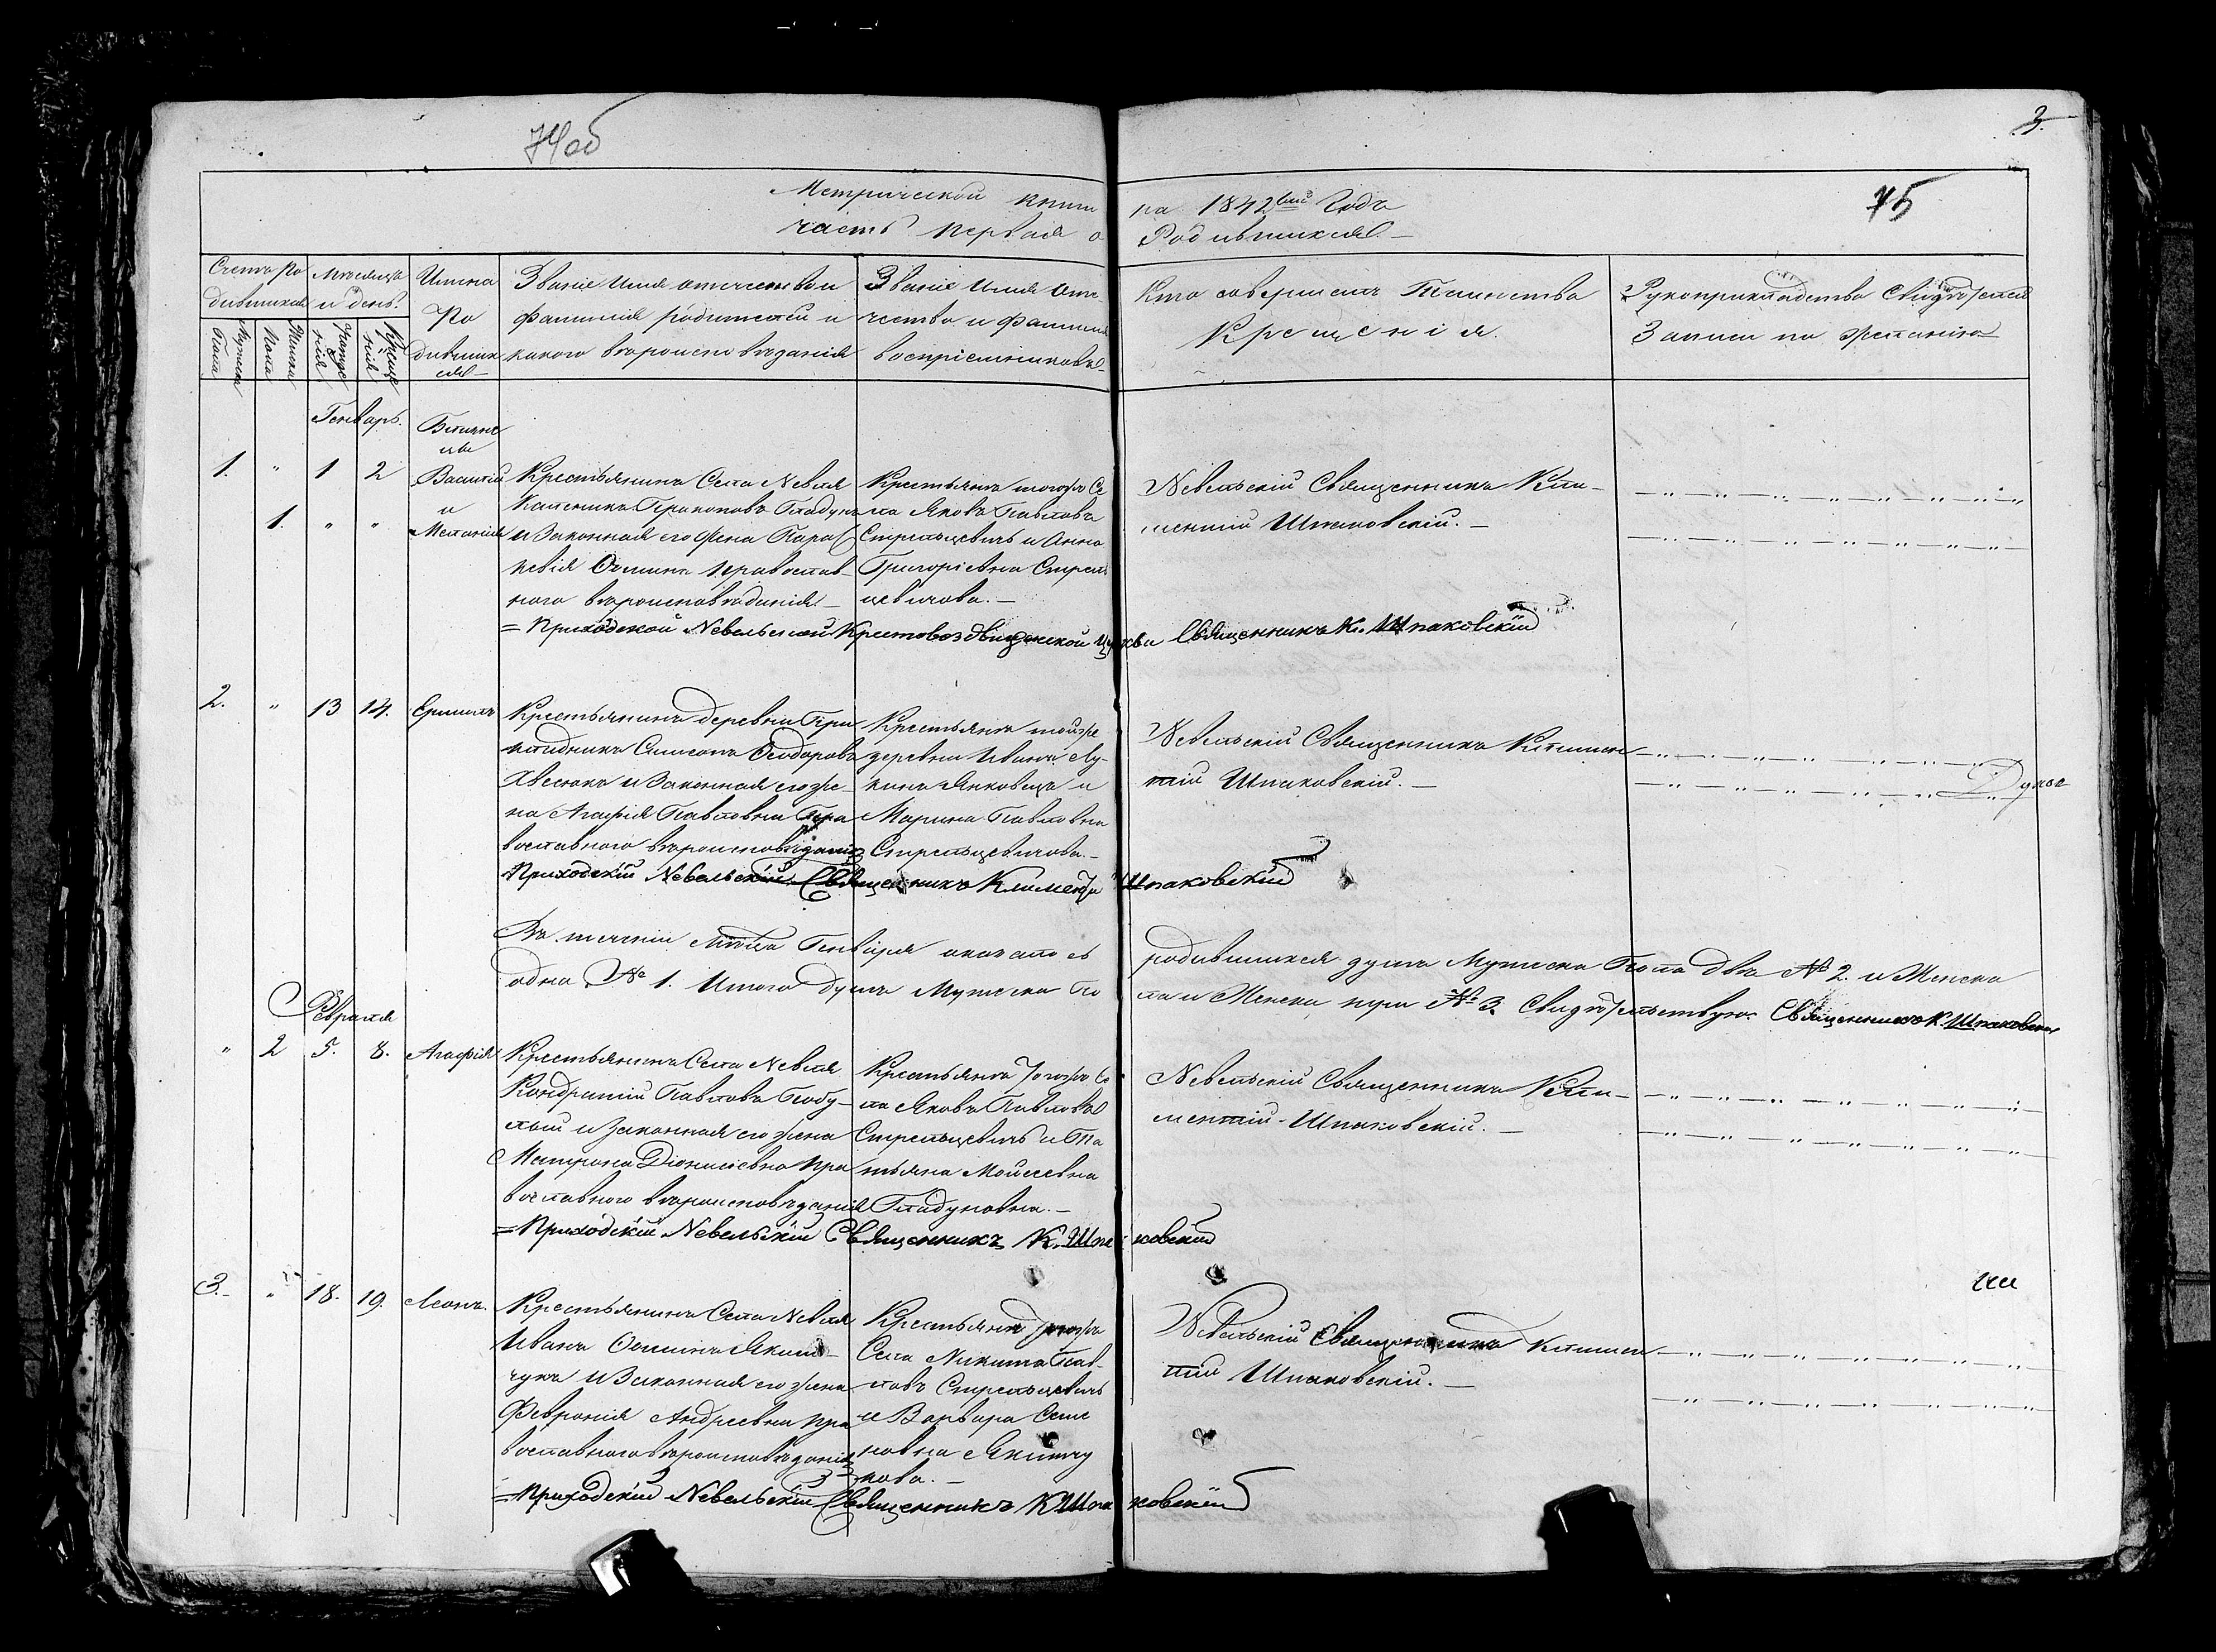 74об
3.
75
Метрической книги на 1842й Годъ
часть первая о Родившихся.
Счетъ ро
дившихся
Мужеска
Пола
Женска
Пола
Мѣсяцъ
и день.
Рожде
нія
Креще
нія
Имена
Ро
дивших
ся
Званіе имя отчество и
фамилія родителей и
какого вѣроисповѣданія
Званіе имя отче
чество и фамилія
воспріемниковъ
Кто совершилъ Таинство
Крещенія.
Рукоприкладство Свидѣтелей
Записи по желанію
Генварь.
Близне
цы
1. " 1 2
1. " "
Василій
и
Меланія
Крестьянинъ Села Невля
Каленикъ Прокоповъ Гладунъ
и Законная его жена Парас
кевія Фомина православ
ного вѣроисповѣданія
Крестьяне тогожъ Се
ла Яковъ Павловъ
Стрельцевичъ и Анна
Григоріевна Стрель
цевичова.
Невельскій Священникъ Кли-
ментій Шпаковскій.
= Приходской Невельской Крестовоздвиженской Церкви Священникъ К. Шпаковскій
2. " 13 14.
Ермилъ
Крестьянинъ деревни При
кладникъ Симеонъ Феодоровъ
Хвесюкъ и Законная его же-
на Агафія Павловна Пра
вославного вѣроисповѣданія
Крестьяне тойже
деревни Иванъ Лу-
кинъ Янковецъ и
Марина Павловна
Стрельцевичова.
Невельскій Священникъ Климен
тій Шпаковскій.
Приходскій Невельскій Священникъ Климентій Шпаковскій
Въ теченіи Мѣсяца Генваря оказалось родившихся душъ Мужеска Пола двѣ № 2. и Женска
одна № 1. Итого душъ Мужеска По ла и Женска три № 3. Свидѣтельствую Священникъ К. Шпаковскій
Февраля
" 2 5. 8.
Агафія
Крестьянинъ Села Невля
Кондратій Павловъ
и законная его жена
Матрона Діонисіевна пра
вославного вѣроисповѣданія
Крестьяне тогожъ Се
ла Яковъ Павловъ
Стрельцевичъ и Та
тьяна Моисеевна
Гладуновна.
Невельскій Священникъ Кли-
ментій Шпаковскій.
= Приходскій Невельскій Священникъ К. Шпаковскій
3. " 18. 19.
Леонъ.
Крестьянинъ Села Невля
Иванъ Фоминъ Яким
чукъ и Законная его жена
Февронія Андреевна пра
вославного вѣроисповѣданія
Крестьяне тогожъ
Села Никита Пав-
ловъ Стрельцевичъ
и Варвара Семе
новна Якимчу
кова.
Невельскій Священникъ Климен
тій Шпаковскій.
= Приходскій Невельскій Священникъ К Шпаковскій